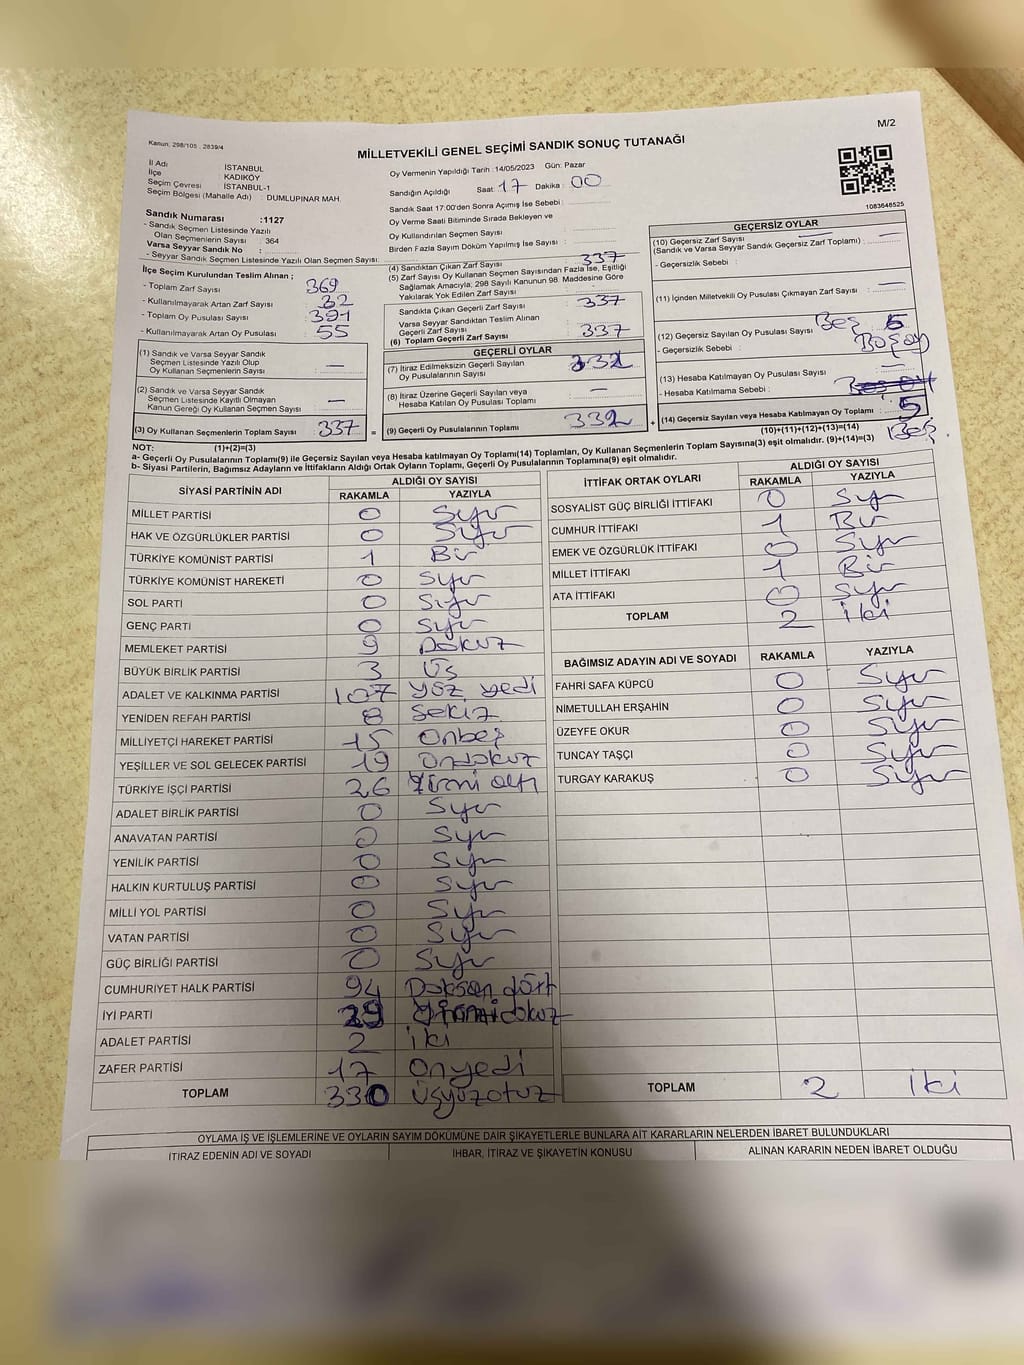 M/2
Kanun. 298/105 . 2839/4
MİLLETVEKİLİ GENEL SEÇİMİ SANDIK SONUÇ TUTANAĞI
İl Adı : İSTANBUL
İlçe : KADIKÖY
Seçim Çevresi : İSTANBUL-1
Seçim Bölgesi (Mahalle Adı) : DUMLUPINAR MAH.
Oy Vermenin Yapıldığı Tarih :14/05/2023 Gün: Pazar
Sandığın Açıldığı Saat : 17 Dakika : 00
Sandık Saat 17:00'den Sonra Açımış İse Sebebi :
Oy Verme Saati Bitiminde Sırada Bekleyen ve
Oy Kullandırılan Seçmen Sayısı :
Birden Fazla Sayım Döküm Yapılmış İse Sayısı :
1083648525
Sandık Numarası :1127
- Sandık Seçmen Listesinde Yazılı
Olan Seçmenlerin Sayısı : 364
Varsa Seyyar Sandık No :
- Seyyar Sandık Seçmen Listesinde Yazılı Olan Seçmen Sayısı:
İlçe Seçim Kurulundan Teslim Alınan ;
- Toplam Zarf Sayısı : 369
- Kullanılmayarak Artan Zarf Sayısı : 32
- Toplam Oy Pusulası Sayısı : 391
- Kullanılmayarak Artan Oy Pusulası : 55
(1) Sandık ve Varsa Seyyar Sandık
Seçmen Listesinde Yazılı Olup
Oy Kullanan Seçmenlerin Sayısı : —
(2) Sandık ve Varsa Seyyar Sandık
Seçmen Listesinde Kayıtlı Olmayan
Kanun Gereği Oy Kullanan Seçmen Sayısı : —
(3) Oy Kullanan Seçmenlerin Toplam Sayısı : 337 =
(4) Sandıktan Çıkan Zarf Sayısı : 337
(5) Zarf Sayısı Oy Kullanan Seçmen Sayısından Fazla İse, Eşitliği
Sağlamak Amacıyla; 298 Sayılı Kanunun 98. Maddesine Göre
Yakılarak Yok Edilen Zarf Sayısı :
Sandıkta Çıkan Geçerli Zarf Sayısı : 337
Varsa Seyyar Sandıktan Teslim Alınan
Geçerli Zarf Sayısı :
(6) Toplam Geçerli Zarf Sayısı : 337
GEÇERLİ OYLAR
(7) İtiraz Edilmeksizin Geçerli Sayılan
Oy Pusulalarının Sayısı : 332
(8) İtiraz Üzerine Geçerli Sayılan veya
Hesaba Katılan Oy Pusulası Toplamı : —
(9) Geçerli Oy Pusulalarının Toplamı : 332 +
GEÇERSİZ OYLAR
(10) Geçersiz Zarf Sayısı
(Sandık ve Varsa Seyyar Sandık Geçersiz Zarf Toplamı) : —
- Geçersizlik Sebebi :
(11) İçinden Milletvekili Oy Pusulası Çıkmayan Zarf Sayısı : —
(12) Geçersiz Sayılan Oy Pusulası Sayısı : Beş 5
- Geçersizlik Sebebi : Boş oy
(13) Hesaba Katılmayan Oy Pusulası Sayısı : —
- Hesaba Katılmama Sebebi :
(14) Geçersiz Sayılan veya Hesaba Katılmayan Oy Toplamı : 5
(10)+(11)+(12)+(13)=(14) Beş
NOT: (1)+(2)=(3)
a- Geçerli Oy Pusulalarının Toplamı(9) ile Geçersiz Sayılan veya Hesaba katılmayan Oy Toplamı(14) Toplamları, Oy Kullanan Seçmenlerin Toplam Sayısına(3) eşit olmalıdır. (9)+(14)=(3)
b- Siyasi Partilerin, Bağımsız Adayların ve İttifakların Aldığı Ortak Oyların Toplamı, Geçerli Oy Pusulalarının Toplamına(9) eşit olmalıdır.
SİYASİ PARTİNİN ADI ALDIĞI OY SAYISI
RAKAMLA YAZIYLA
MİLLET PARTİSİ 0 Sıfır
HAK VE ÖZGÜRLÜKLER PARTİSİ 0 Sıfır
TÜRKİYE KOMÜNİST PARTİSİ 1 Bir
TÜRKİYE KOMÜNİST HAREKETİ 0 Sıfır
SOL PARTİ 0 Sıfır
GENÇ PARTİ 0 Sıfır
MEMLEKET PARTİSİ 9 Dokuz
BÜYÜK BİRLİK PARTİSİ 3 Üş
ADALET VE KALKINMA PARTİSİ 107 Yüz yedi
YENİDEN REFAH PARTİSİ 8 Sekiz
MİLLİYETÇİ HAREKET PARTİSİ 15 Onbeş
YEŞİLLER VE SOL GELECEK PARTİSİ 19 Ondokuz
TÜRKİYE İŞÇİ PARTİSİ 26 Yirmi altı
ADALET BİRLİK PARTİSİ 0 Sıfır
ANAVATAN PARTİSİ 0 Sıfır
YENİLİK PARTİSİ 0 Sıfır
HALKIN KURTULUŞ PARTİSİ 0 Sıfır
MİLLİ YOL PARTİSİ 0 Sıfır
VATAN PARTİSİ 0 Sıfır
GÜÇ BİRLİĞİ PARTİSİ 0 Sıfır
CUMHURİYET HALK PARTİSİ 94 Doksan dört
İYİ PARTİ 29 Yirmidokuz
ADALET PARTİSİ 2 iki
ZAFER PARTİSİ 17 Onyedi
TOPLAM 330 Üşyüzotuz
İTTİFAK ORTAK OYLARI ALDIĞI OY SAYISI
RAKAMLA YAZIYLA
SOSYALİST GÜÇ BİRLİĞİ İTTİFAKI 0 Sıfır
CUMHUR İTTİFAKI 1 Bir
EMEK VE ÖZGÜRLÜK İTTİFAKI 0 Sıfır
MİLLET İTTİFAKI 1 Bir
ATA İTTİFAKI 0 Sıfır
TOPLAM 2 iki
BAĞIMSIZ ADAYIN ADI VE SOYADI RAKAMLA YAZIYLA
FAHRİ SAFA KÜPCÜ 0 Sıfır
NİMETULLAH ERŞAHİN 0 Sıfır
ÜZEYFE OKUR 0 Sıfır
TUNCAY TAŞÇI 0 Sıfır
TURGAY KARAKUŞ 0 Sıfır
TOPLAM 2 iki
OYLAMA İŞ VE İŞLEMLERİNE VE OYLARIN SAYIM DÖKÜMÜNE DAİR ŞİKAYETLERLE BUNLARA AİT KARARLARIN NELERDEN İBARET BULUNDUKLARI
İTİRAZ EDENİN ADI VE SOYADI İHBAR, İTİRAZ VE ŞİKAYETİN KONUSU ALINAN KARARIN NEDEN İBARET OLDUĞU